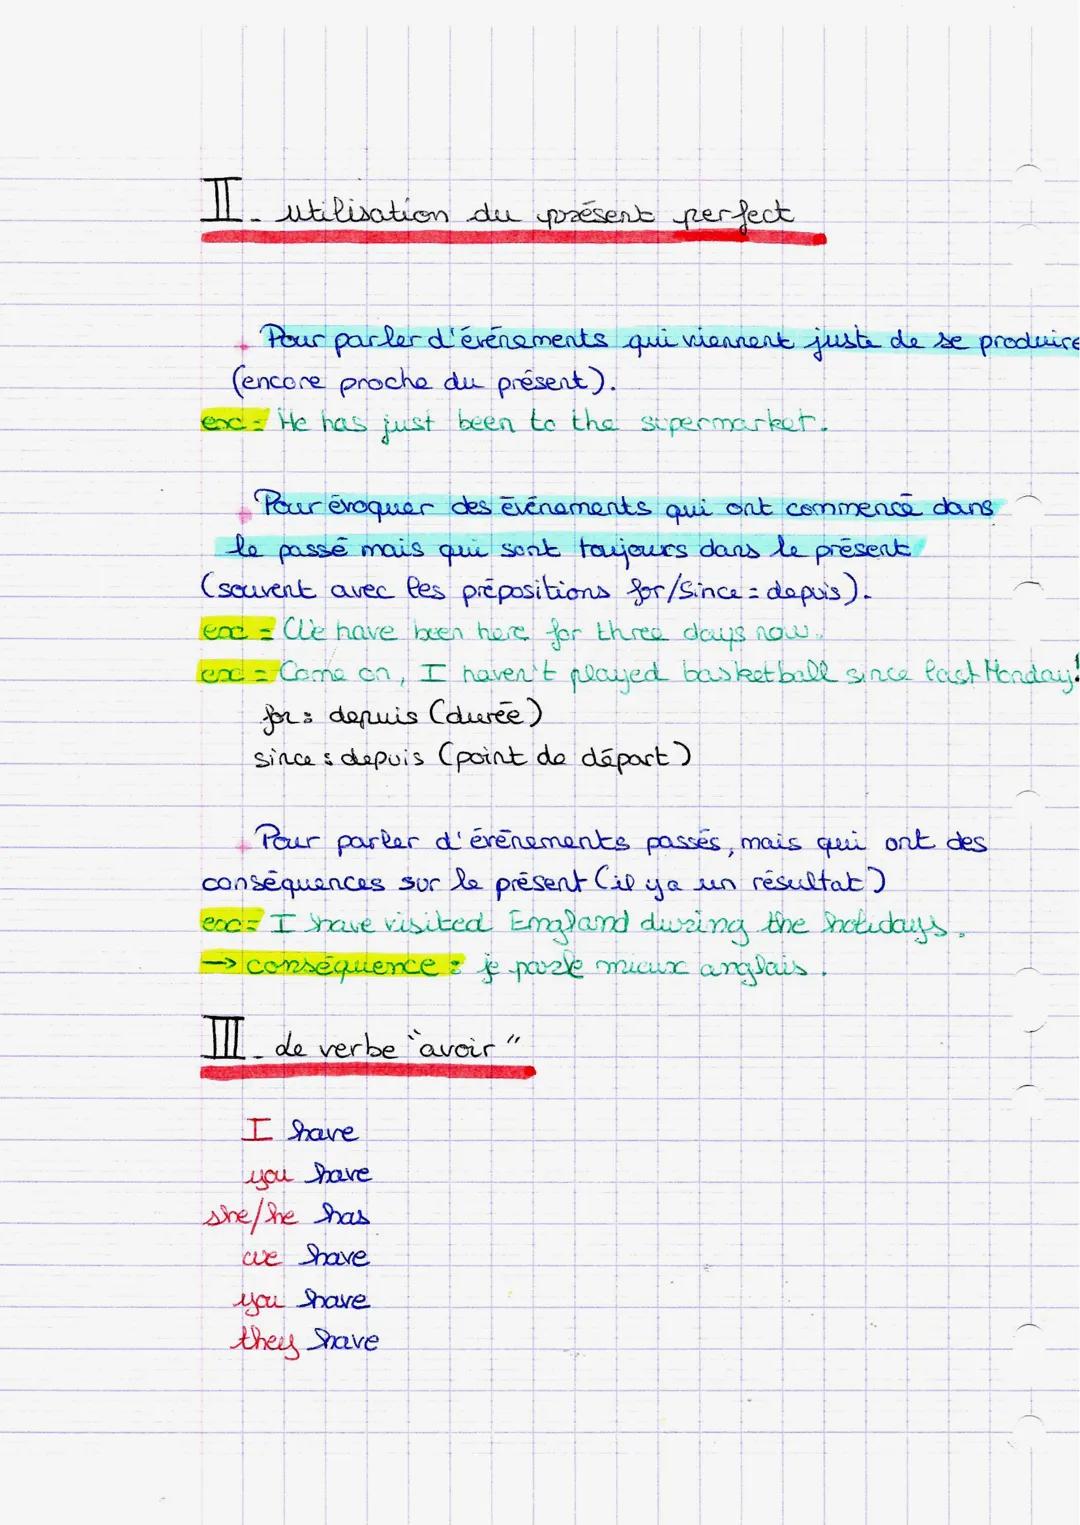 II - utilisation du présent perfect
+ Pour parler d'événements qui viennent juste de se produire
(encore proche du présent).
exc = He has just been to the supermarket.
+ Pour évoquer des événements qui ont commencé dans
le passé mais qui sont toujours dans le présent
(souvent avec les prépositions for/Since = depuis).
exc = We have been here for three days now.
exc = Come on, I haven't played basketball since last Monday!
for : depuis (durée)
since : depuis (point de départ)
+ Pour parler d'événements passés, mais qui ont des
conséquences sur le présent (il y a un résultat)
exc = I have visited England during the holidays.
→ conséquence : je parle mieux anglais.
III - le verbe "avoir"
I have
you have
she/he has
we have
you have
they have